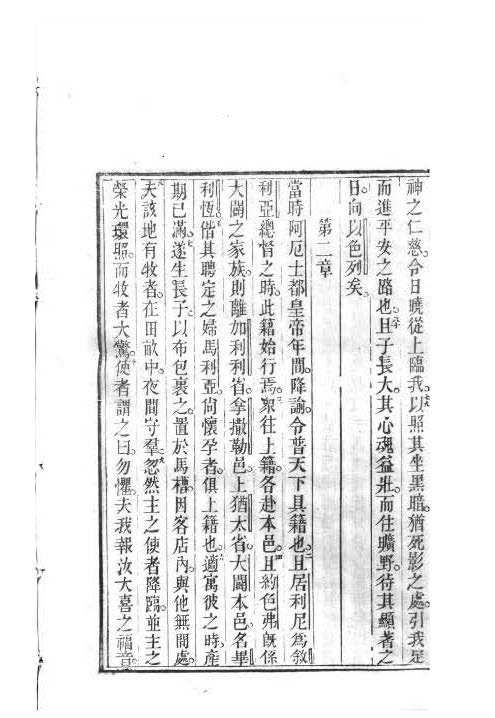 神之仁慈。令日曉從上臨我。以照其坐黑暗。猶死影之處。引我足
而進平安之路也。且子長大。其心魂益壯。而住曠野。待其顯著之
日。向以色列矣。
第二章
當時阿厄士都皇帝年間。降諭。令普天下具籍也。且居利尼爲敘
利亞總督之時。此籍始行焉。衆往上籍。各赴本邑。且約色弗旣係
大闢之家族。則離加利利省。拿撒勒邑。上猶太省。大闢本邑。名畢
利恆。偕其聘定之婦馬利亞。尙懷孕者。俱上籍也。適寓彼之時。產
期已滿。遂生長子。以布包裹之。置於馬槽。因客店內。與他無閒處。
夫該地有牧者。在田畝中。夜間守羣。忽然主之使者降臨。並主之
榮光環照。而牧者大驚。使者謂之曰。勿懼。夫我報汝大喜之福音。